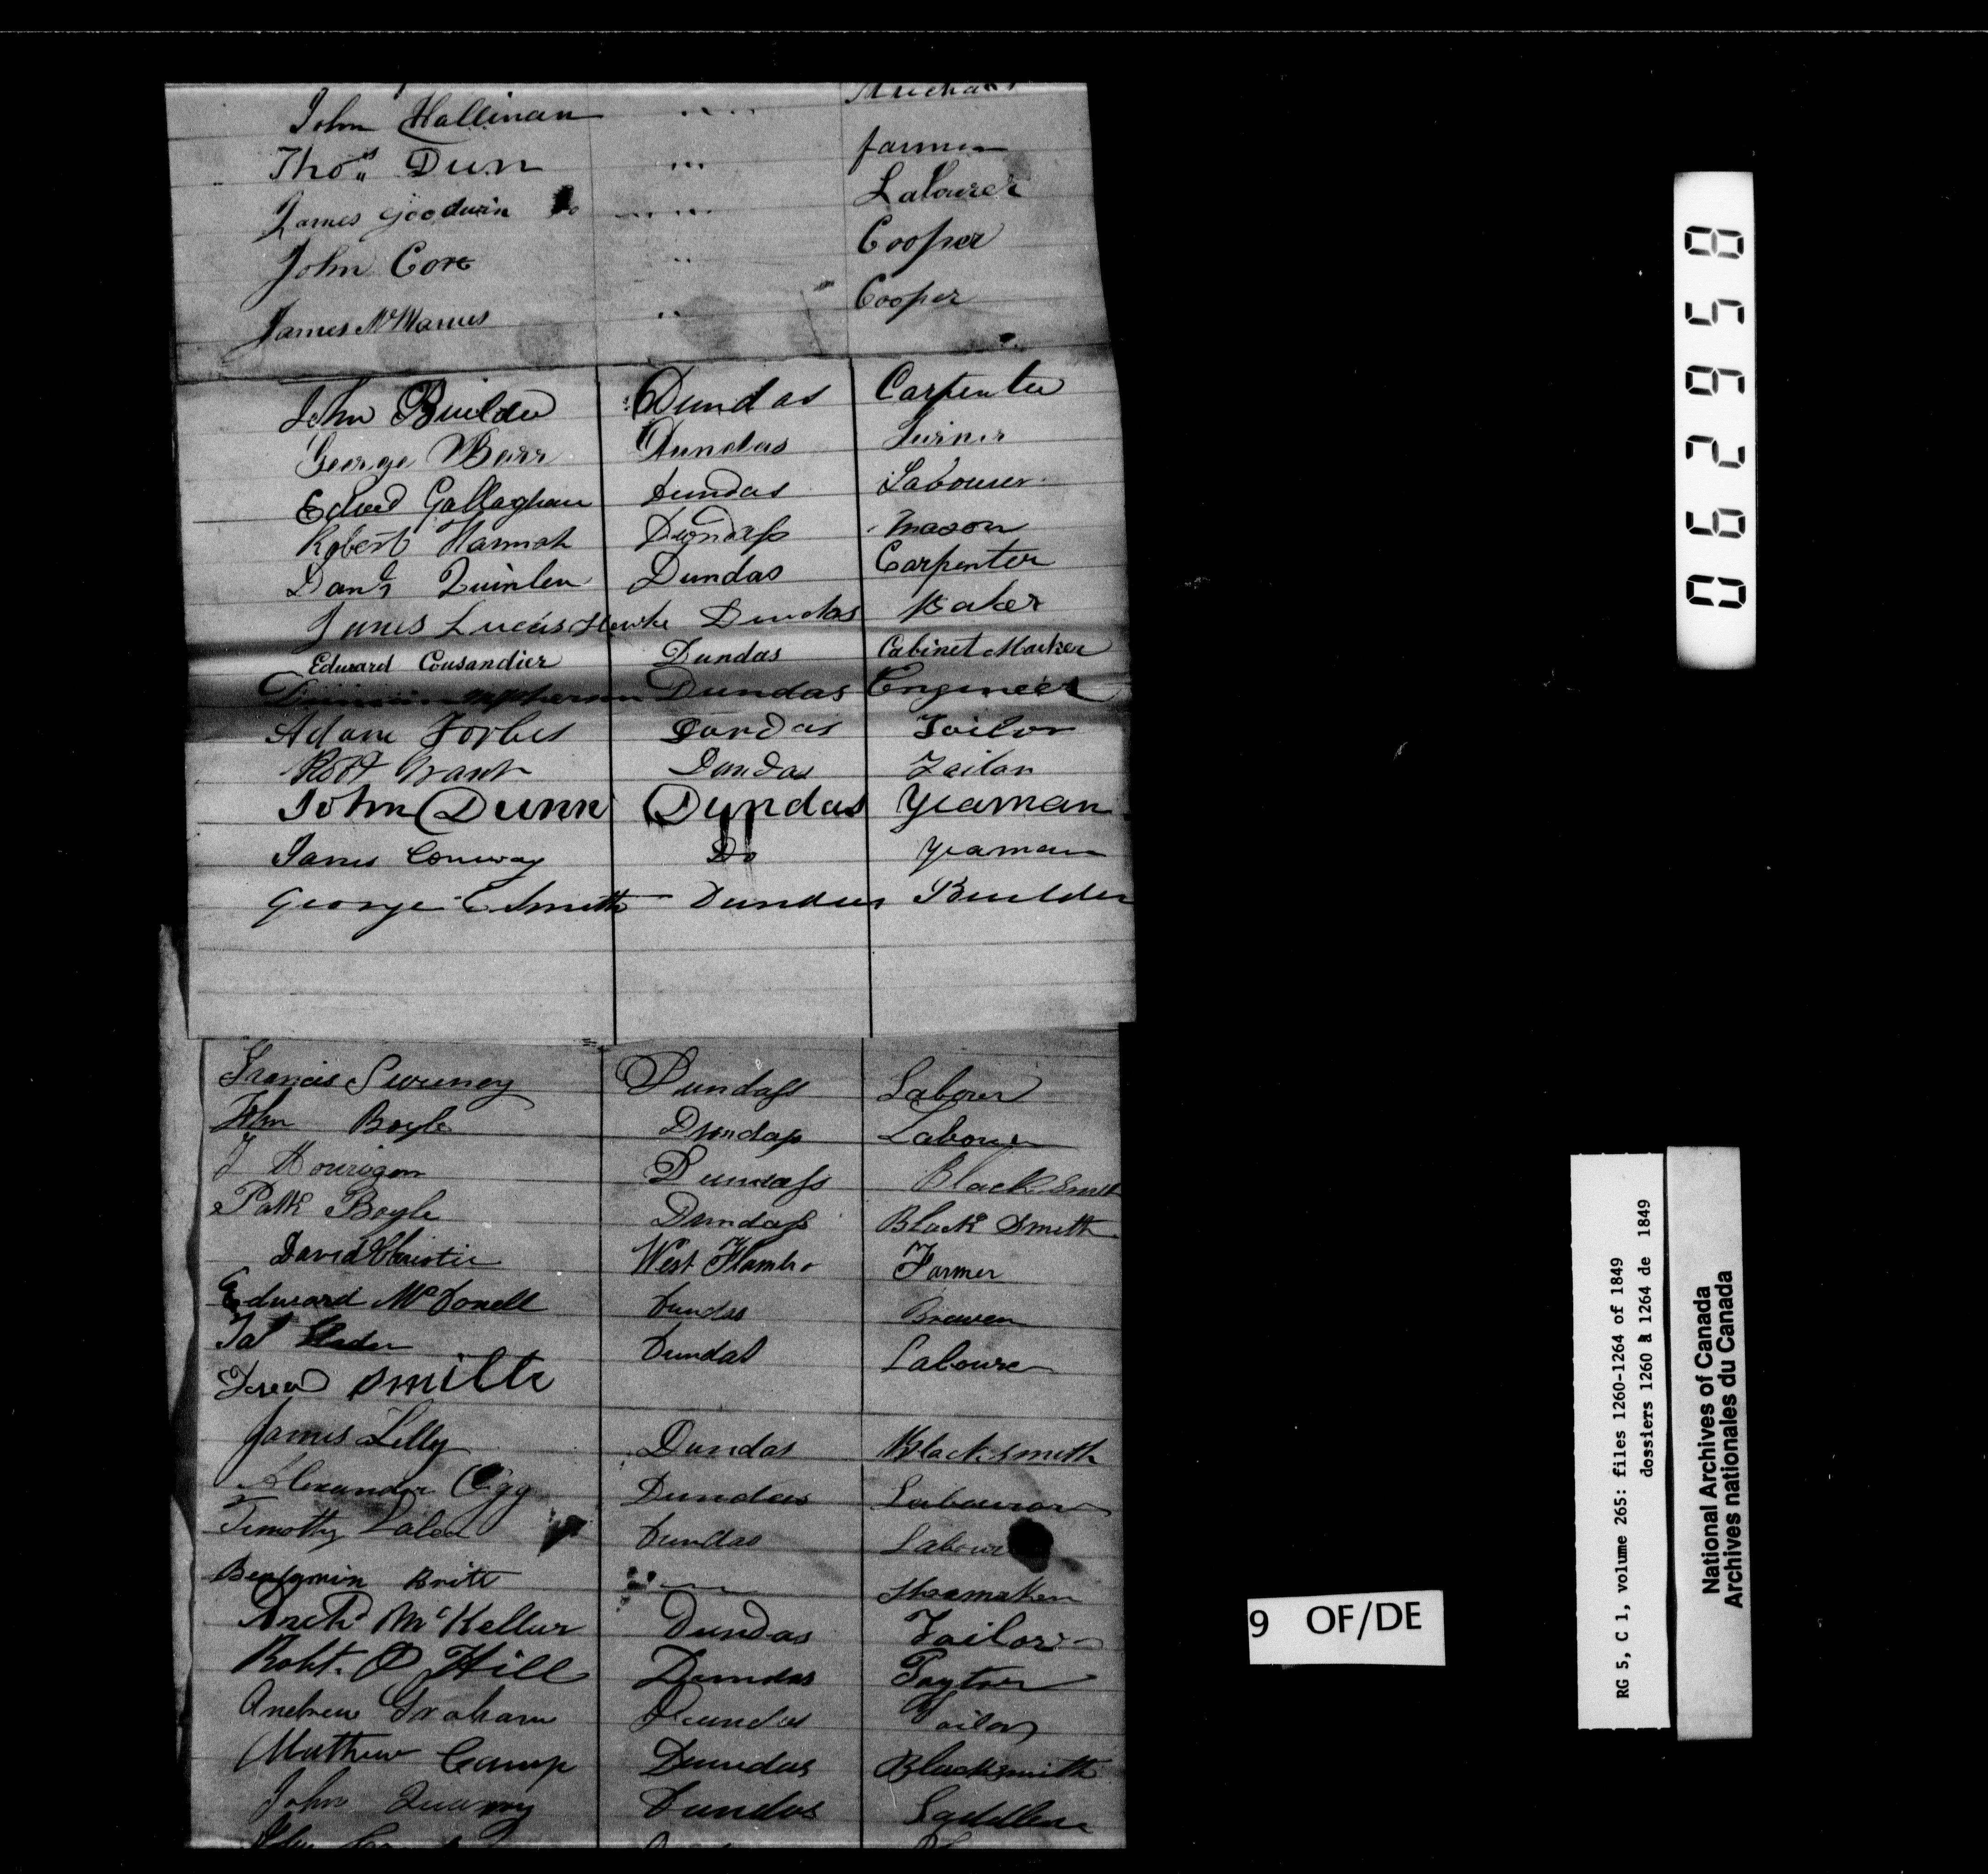 John Hallinan " " Mechanic
Thos Dun " " farmer
James Goodwin Do " " Labourer
John Core " Cooper
James McManus " Cooper
John Builder Dundas Carpenter
George Barr Dundas Turner
Edwd Gallagham Dundas Labourer
Robert Hannah Dundass Mason
Danl Quinlen Dundas Carpenter
James Lucas Hawke Dundas Baker
Edward Cousandier Dundas Cabinet Macker
Dundas Engineer
Adam Forbes Dundas Tailor
Robt Grant Dundas Tailor
John Dunn Dundas Yeaman
James Conway Do Yeaman
George E Smith Dundas Builder
Francis Sweeney Dundass Labourer
John Boyle Dundass Labourer
J Hourigan Dundass Black Smith
Patk Boyle Dundass Black Smith
David Christie West Flambro Farmer
Edward McDonell Dundas Brewer
Dundas Labourer
Smith
James Lilly Dundas Blacksmith
Alexander Ogg Dundas Labouror
Timothy Dundas Labour
Benjamin Britt " Shoemaker
Archd McKellar Dundas Tailor
Robt. O Hill Dundas
Andrew Graham Dundas Tailor
Matthew Camp Dundas Blacksmith
John Quarry Dundas Saddler
062958
RG 5, C 1, volume 265: files 1260-1264 of 1849
dossiers 1260 à 1264 de 1849
National Archives of Canada
Archives nationales du Canada
9 OF/DE